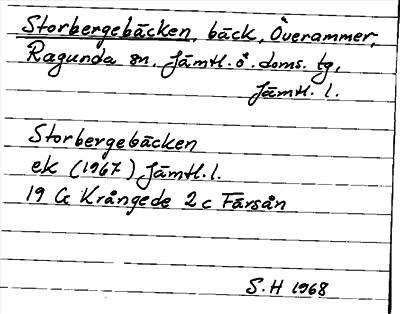 Storbergebäcken, bäck, Överammer,
Ragunda sn. Jämtl. ö. doms. tg,
Jämtl. l.
Storbergebäcken
ek (1967) Jämtl. l.
19 G Krångede 2 c Färsån
S. H 1968